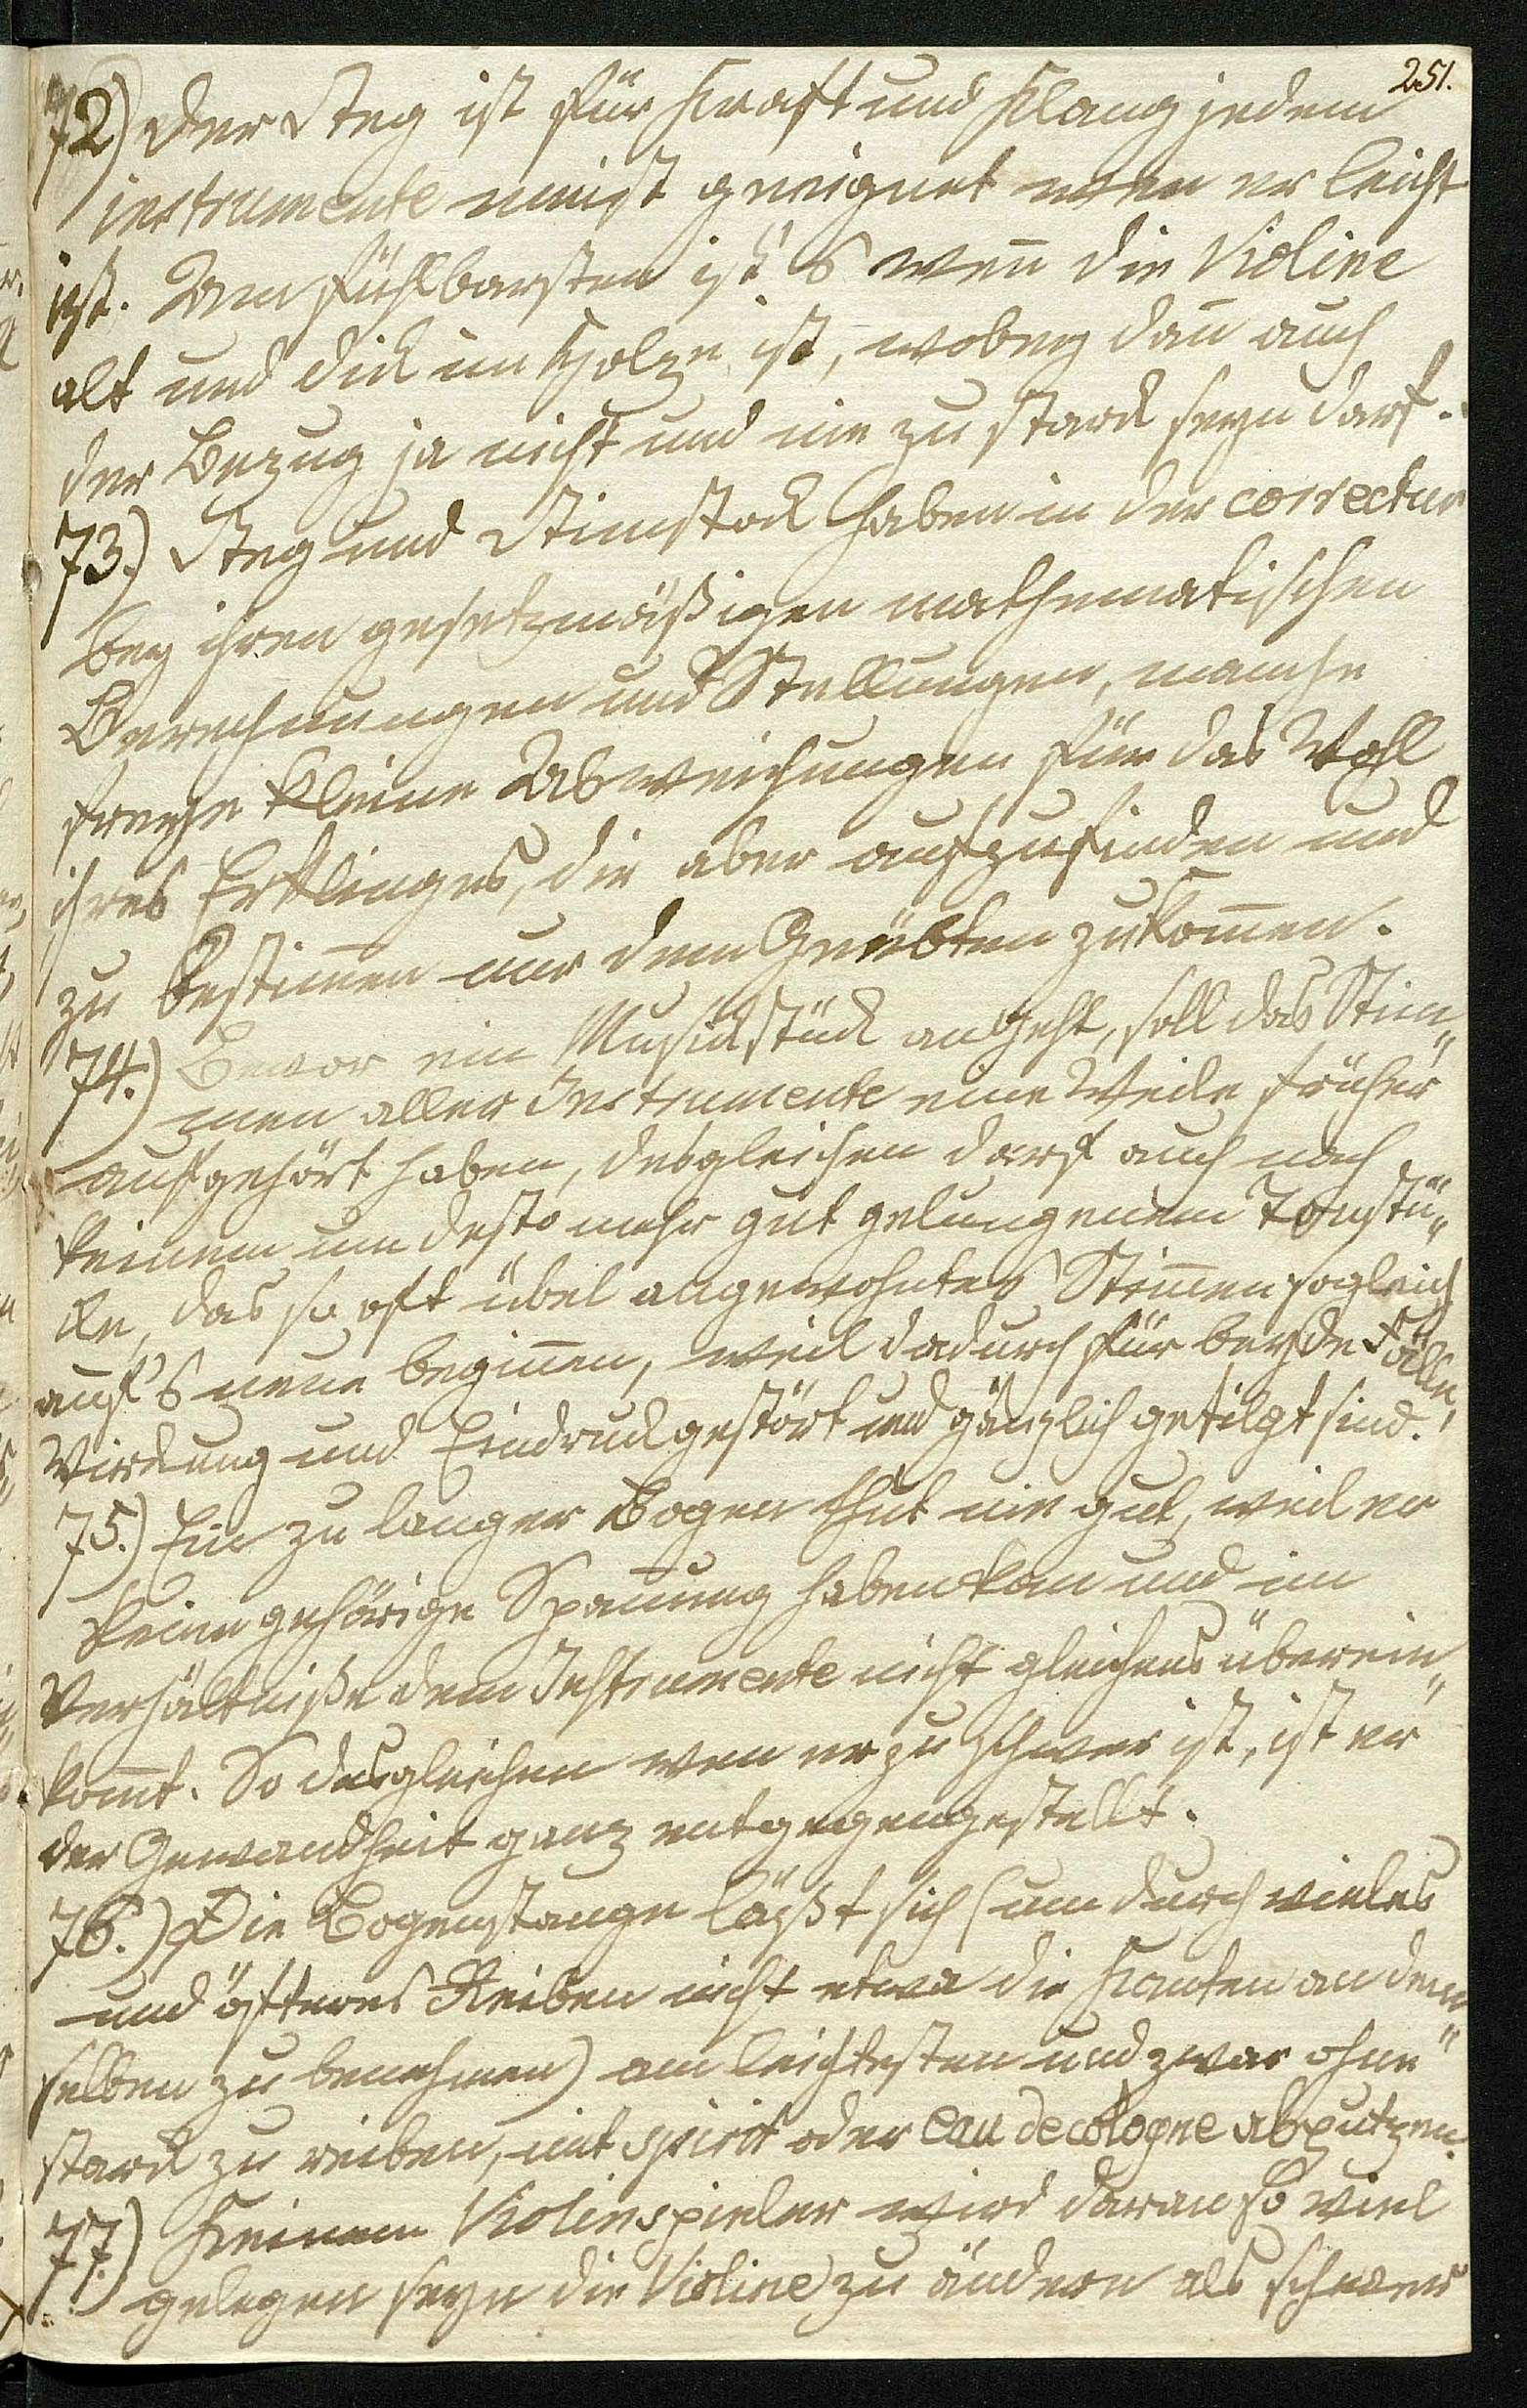 251.
72) Der Steg ist für Kraft und Klang jedem
instrumente meist geeignet wen er leicht
ist. Am fühlbarsten ist's weñ die Violine
alt und dick im Holze ist, wobey dañ auch
der Bezug ja nicht und nie zu starck seyn darf.
73.) Steg und Stimstock haben in der correctur
bey ihren gesetzmäßigen mathematischen
Berechnungen und Stellungen, manche
freye kleine Abweichungen für das Wohl
ihres Erklinges, die aber aufzufinden und
zu bestim̄en nur dem Geübten zukom̄en.
74.) Bevor ein Musickstück angeht, soll das Stim„
men aller Instrumente eine Weile früher
aufgehört haben, desgleichen darf auch nach
keinem um desto mehr gut gelungenem Tonstü„
cke, das so oft übel angewohntes Stim̄en sogleich
auf's neue begiñen, weil dadurch für beyde Fälle,
Wirckung und Eindruck gestört und gänzlich getilgt sind.
75.) Ein zu langer Bogen thut nie gut, weil er
keine gehörige Spañung haben kan und im
Verhältniße dem Instrumente nicht gleichens überein„
kom̄t. So desgleichen wen er zu schwer ist, ist er
der Gewandheit ganz entgegengestellt.
76.) Die Bogenstange läßt sich (um durch vieles
und öfteres Reiben nicht etwa die Kanten an dem„
selben zu benehmen) am leichtesten und zwar ohne
starck zu reiben, mit spirit oder eau de cologne abputzen.
77.) Keinem Violinspieler wird daran so viel
gelegen seyn die Violine zu ändern als schwer